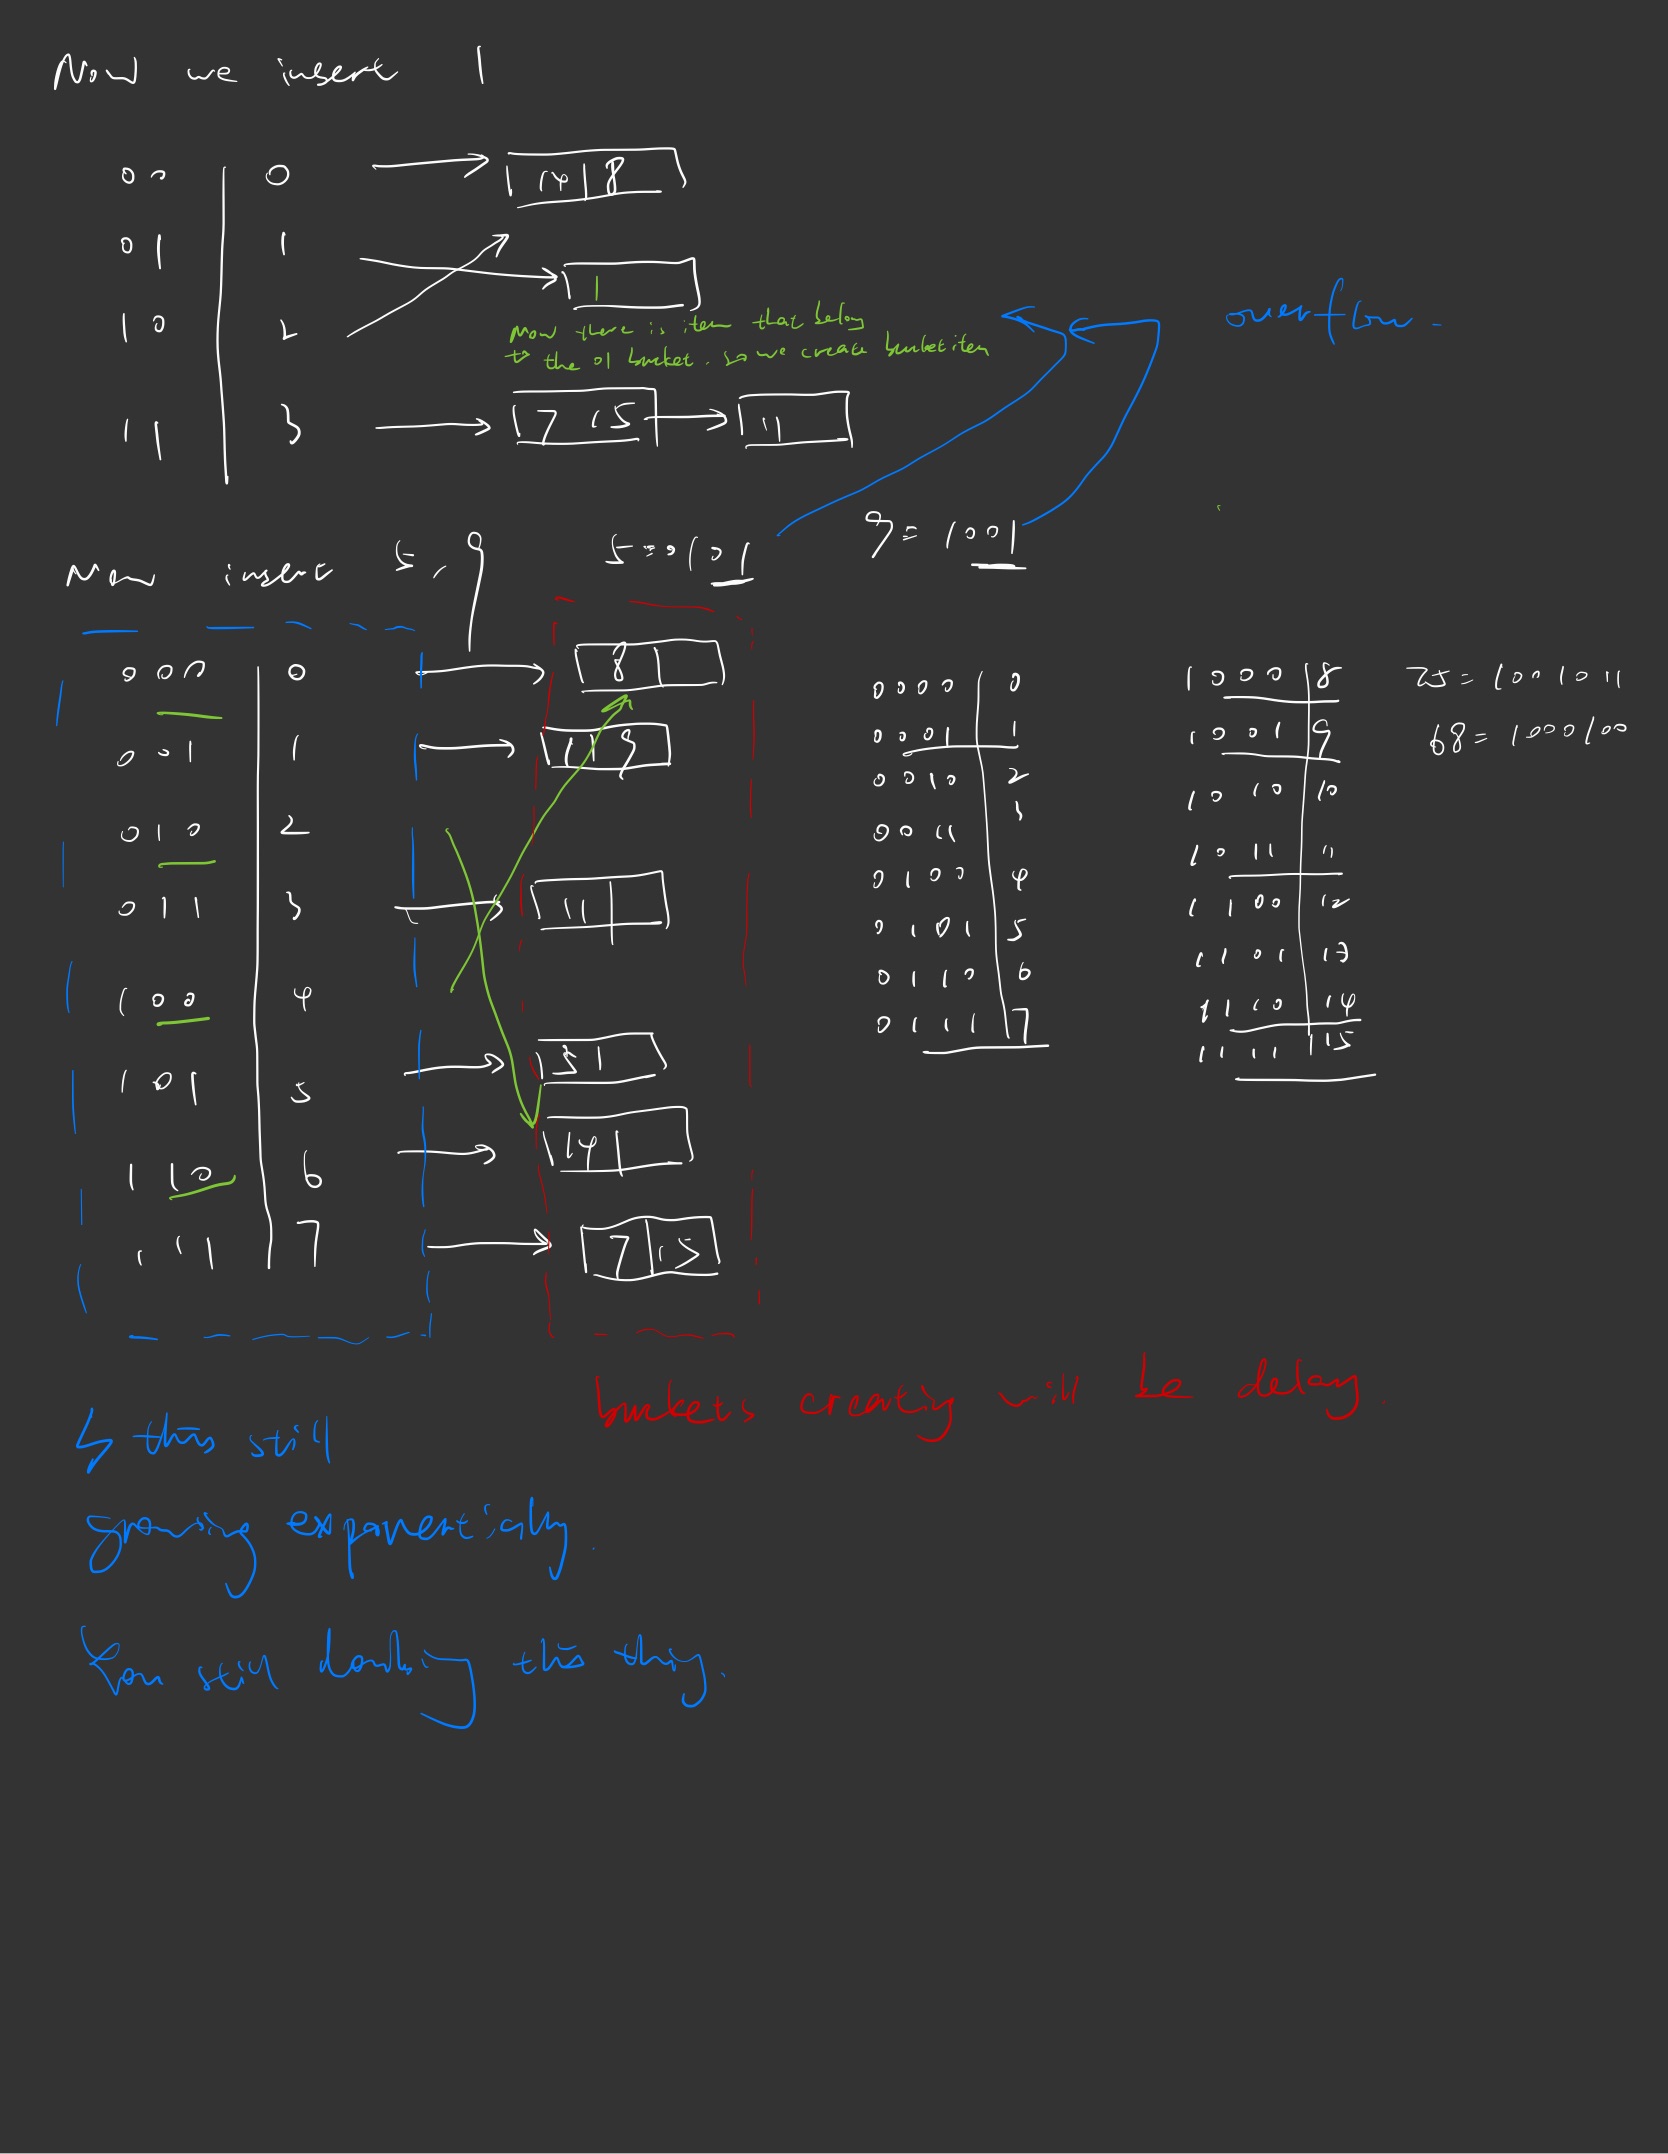 Now we insert 1
00 | 0 → 14 | 8
01 | 1 → 1
10 | 2
Now there is item that belong
to the 01 bucket. so we create bucket item
overflow.
11 | 3 → 7 15 → 11
Now insert 5, 9
5 = 0101
9 = 1001
000 | 0 → 8
001 | 1 → 1 | 9
010 | 2
011 | 3 → 11
100 | 4
101 | 5 → 5
110 | 6 → 14
111 | 7 → 7 | 15
0000 | 0
0001 | 1
0010 | 2
0011 | 3
0100 | 4
0101 | 5
0110 | 6
0111 | 7
1000 | 8
1001 | 9
1010 | 10
1011 | 11
1100 | 12
1101 | 13
1110 | 14
1111 | 15
75 = 1001011
68 = 1000100
buckets creating will be delay.
↳ this still
growing exponentially.
You still doubling this thing.